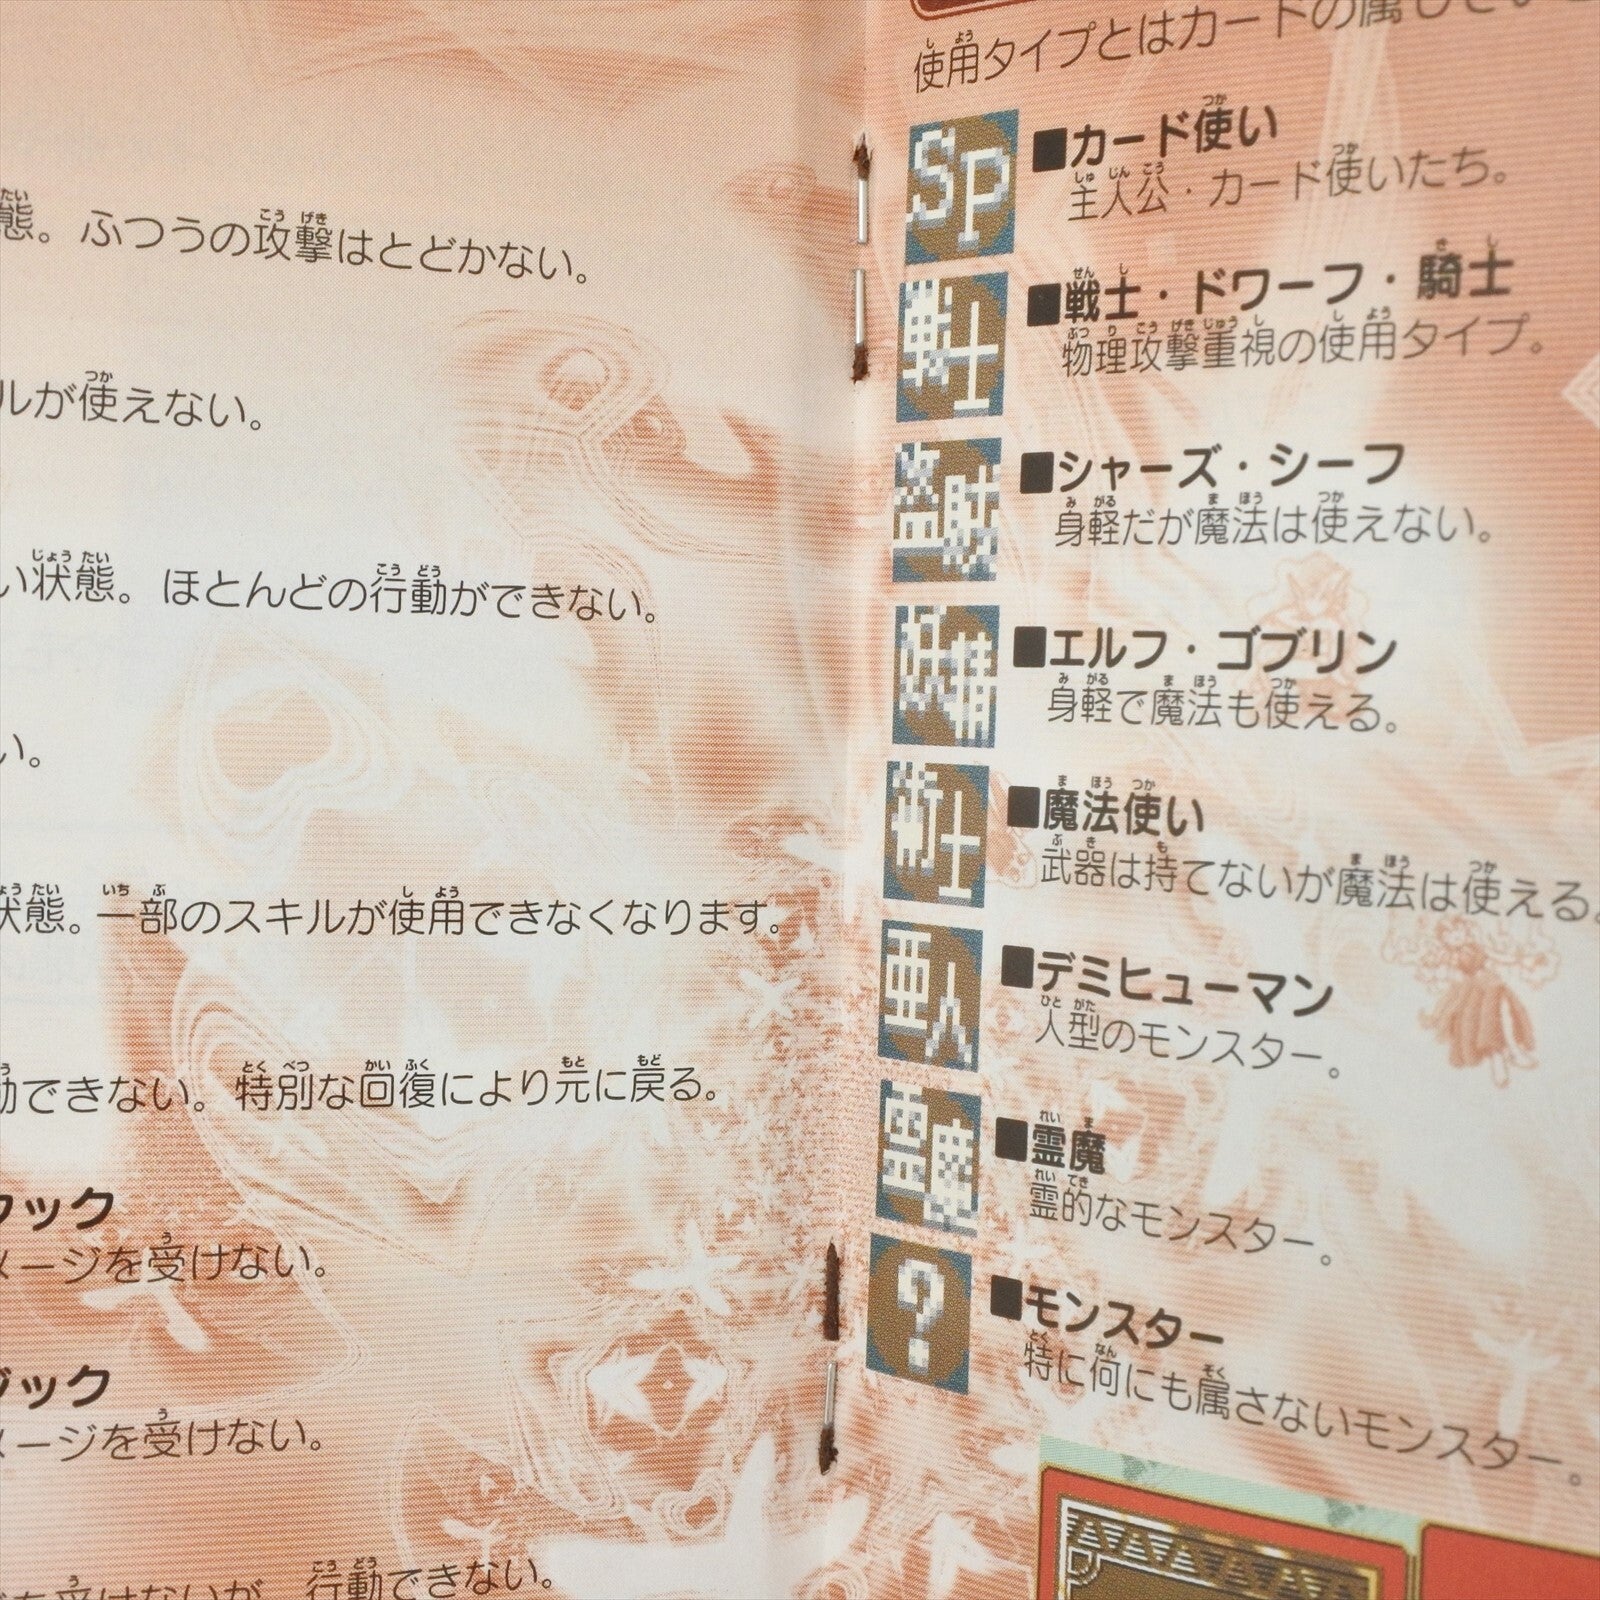 態。ふつうの攻撃はとどかない。
ルが使えない。
い状態。ほとんどの行動ができない。
い。
状態。一部のスキルが使用できなくなります。
動できない。特別な回復により元に戻る。
ック
メージを受けない。
ジック
メージを受けない。
を受けないが、行動できない。
使用タイプとはカードの属
SP
■カード使い
主人公・カード使いたち。
戦士
■戦士・ドワーフ・騎士
物理攻撃重視の使用タイプ。
盗賊
■シャーズ・シーフ
身軽だが魔法は使えない。
妖精
■エルフ・ゴブリン
身軽で魔法も使える。
術士
■魔法使い
武器は持てないが魔法は使える。
亜人
■デミヒューマン
人型のモンスター。
霊魔
■霊魔
霊的なモンスター。
?
■モンスター
特に何にも属さないモンスター。